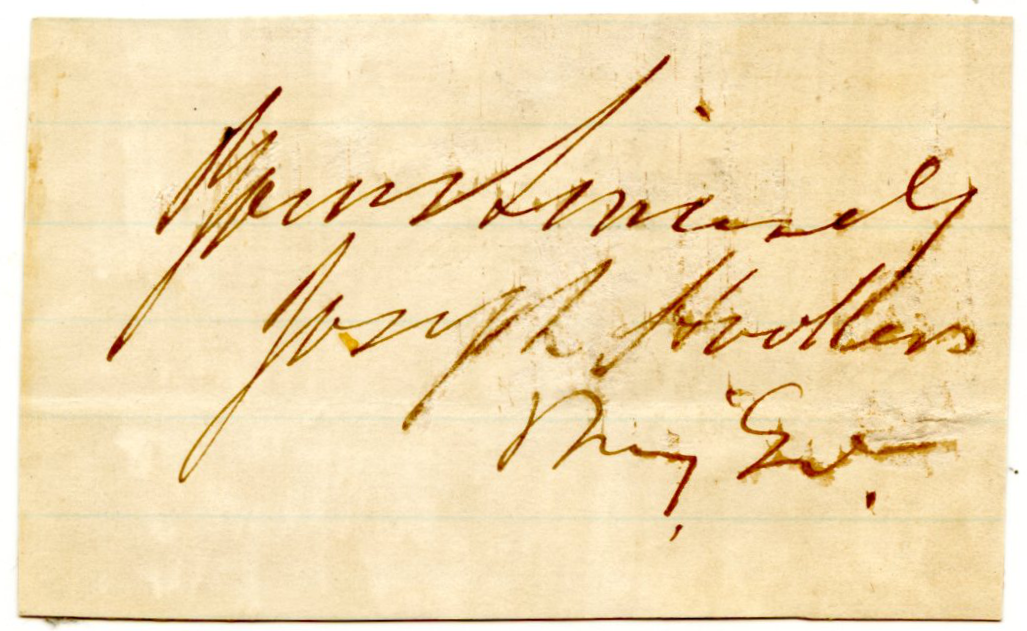 Yours Sincerely
Joseph Hooker
Maj. Gen.